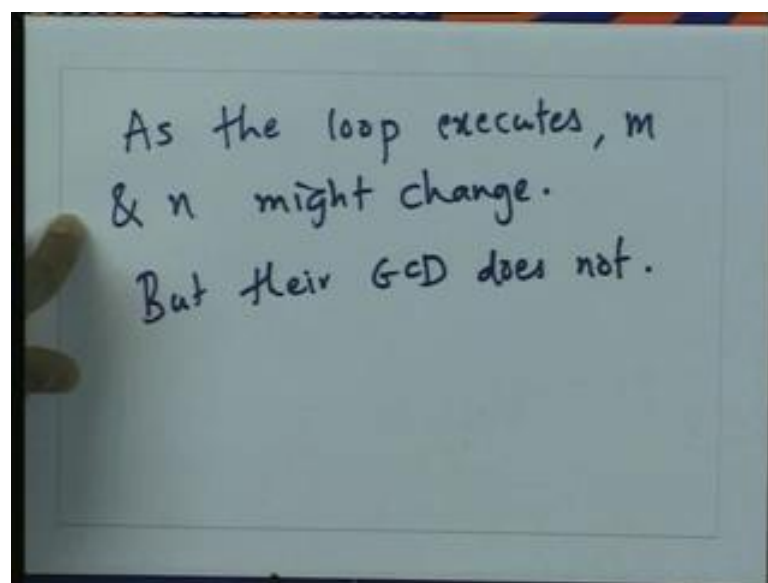 As the loop executes, m
& n might change.
But their GCD does not.